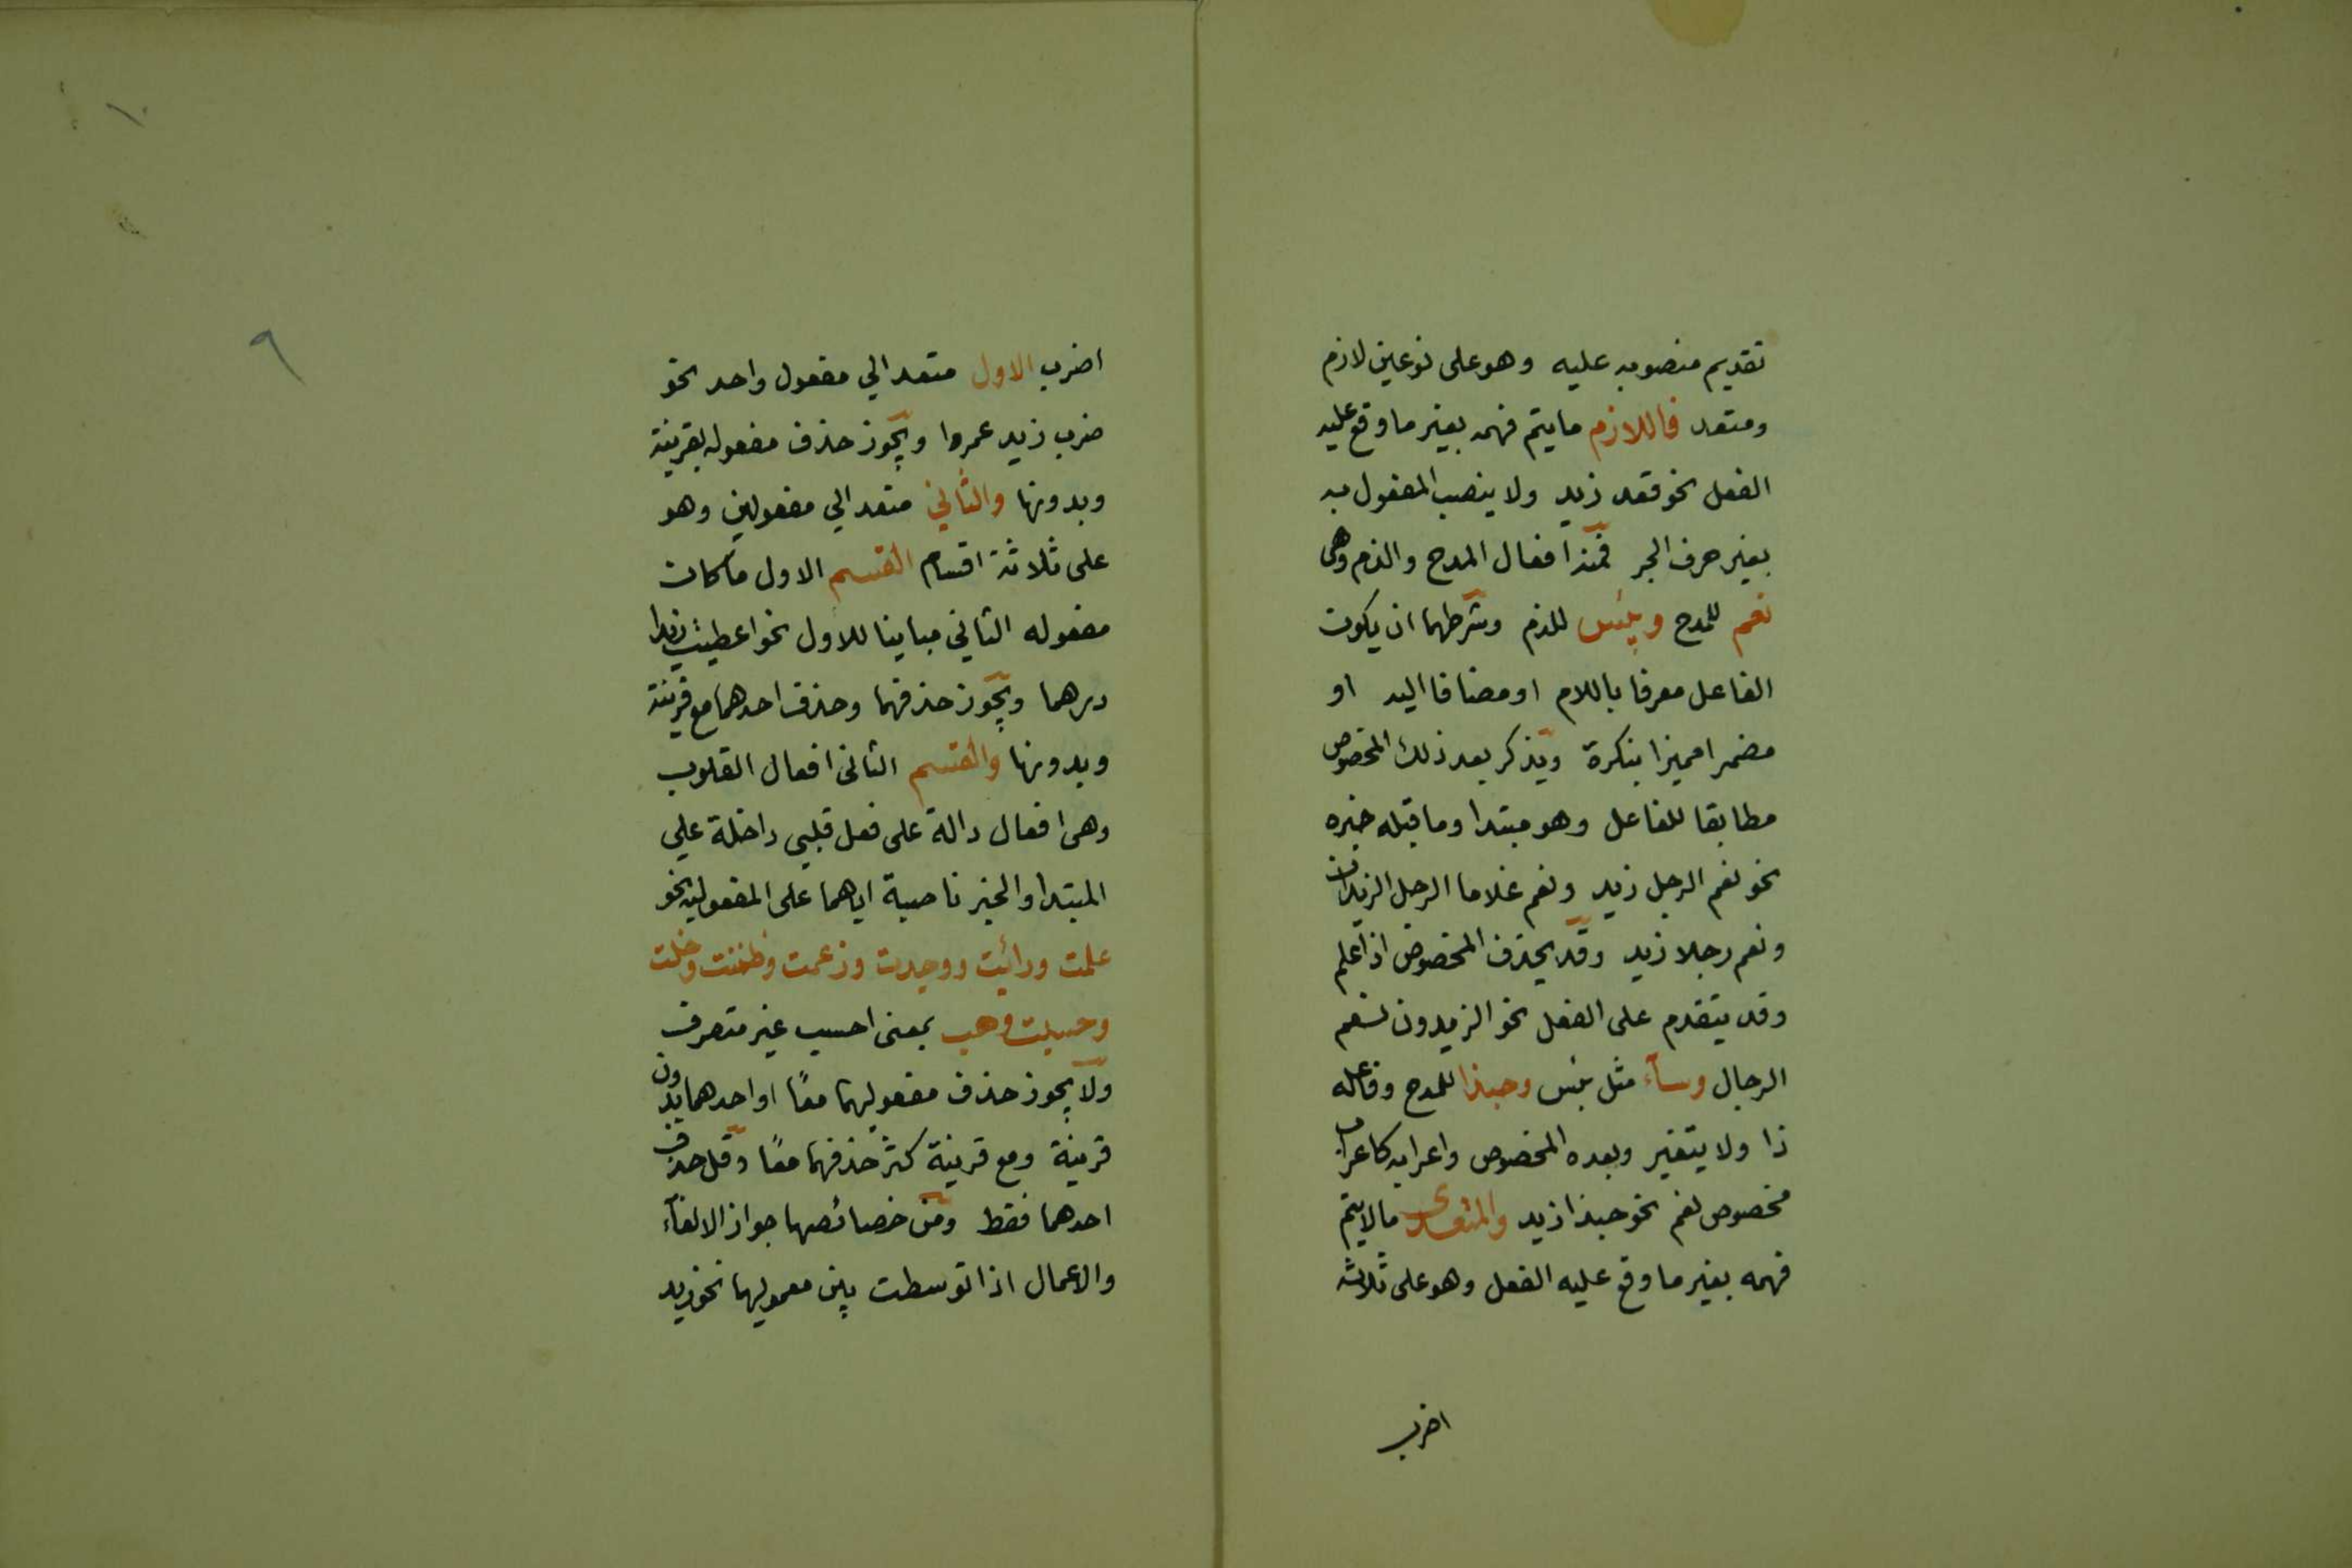 تقديم منصوبه عليه وهو على نوعين لازم
ومتعد فاللازم ما يتم فهمه بغير ما وقع عليه
الفعل نحو قعد زيد ولا ينصب المفعول به
بغير حرف الجر فمنه افعال المدح والذم وهى
نعم للمدح وبئس للذم وشرطهما ان يكون
الفاعل معرفا باللام او مضافا اليه او
مضمرا مميزا بنكرة ويذكر بعد ذلك المخصوص
مطابقا للفاعل وهو مبتدا وما قبله خبره
نحو نعم الرجل زيد ونعم غلاما الرجل الزيدان
ونعم رجلا زيد وقد يحذف المخصوص اذا علم
وقد يتقدم على الفعل نحو الزيدون نعم
الرجال وسآء مثل بئس وحبذا للمدح وفاعله
ذا ولا يتغير وبعده المخصوص واعرابه كاعراب
مخصوص نعم نحو حبذا زيد والمتعدى ما لا يتم
فهمه بغير ما وقع عليه الفعل وهو على ثلاثة
اضرب
١٠
٩
اضرب الاول متعد الي مفعول واحد نحو
ضرب زيد عمروا ويجوز حذف مفعوله بقرينة
وبدونها والثاني متعد الي مفعولين وهو
على ثلاثة اقسام القسم الاول ما كان
مفعوله الثاني مباينا للاول نحو اعطيت زيدا
درهما ويجوز حذفهما وحذف احدهما مع قرينة
وبدونها والقسم الثانى افعال القلوب
وهى افعال دالة على فعل قلبي داخلة علي
المبتدا والخبر ناصبة اياهما على المفعولية نحو
علمت ورائيت ووجدت وزعمت وظننت وخلت
وحسبت وهب بمعنى احسب غير متصرف
ولا يجوز حذف مفعوليهما معًا او احدهما بدون
قرينة ومع قرينة كثر حذفهما معًا وقل حذف
احدهما فقط ومن خصائصها جواز الالغآء
والاعمال اذا توسطت بين معموليها نحو زيد